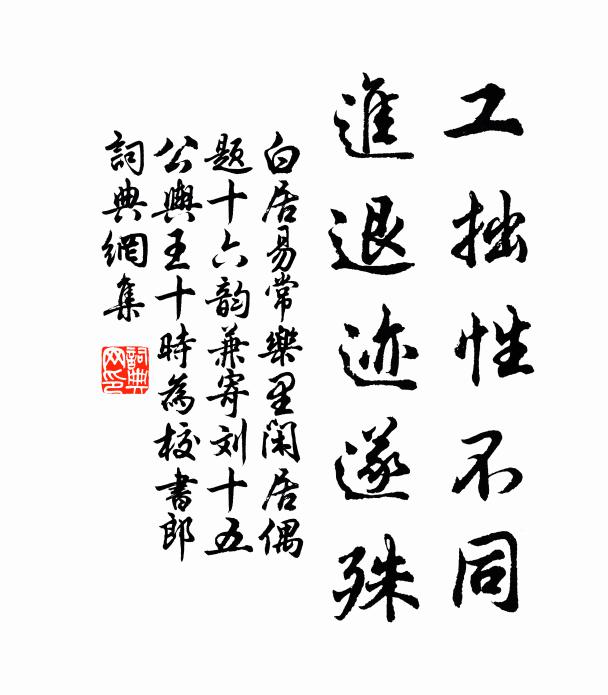 工拙性不同
進退迹遂殊
白居易常樂里閑居偶
题十六韵兼寄刘十五
公輿王十時為校書郎
詞典網集
詞典
网印